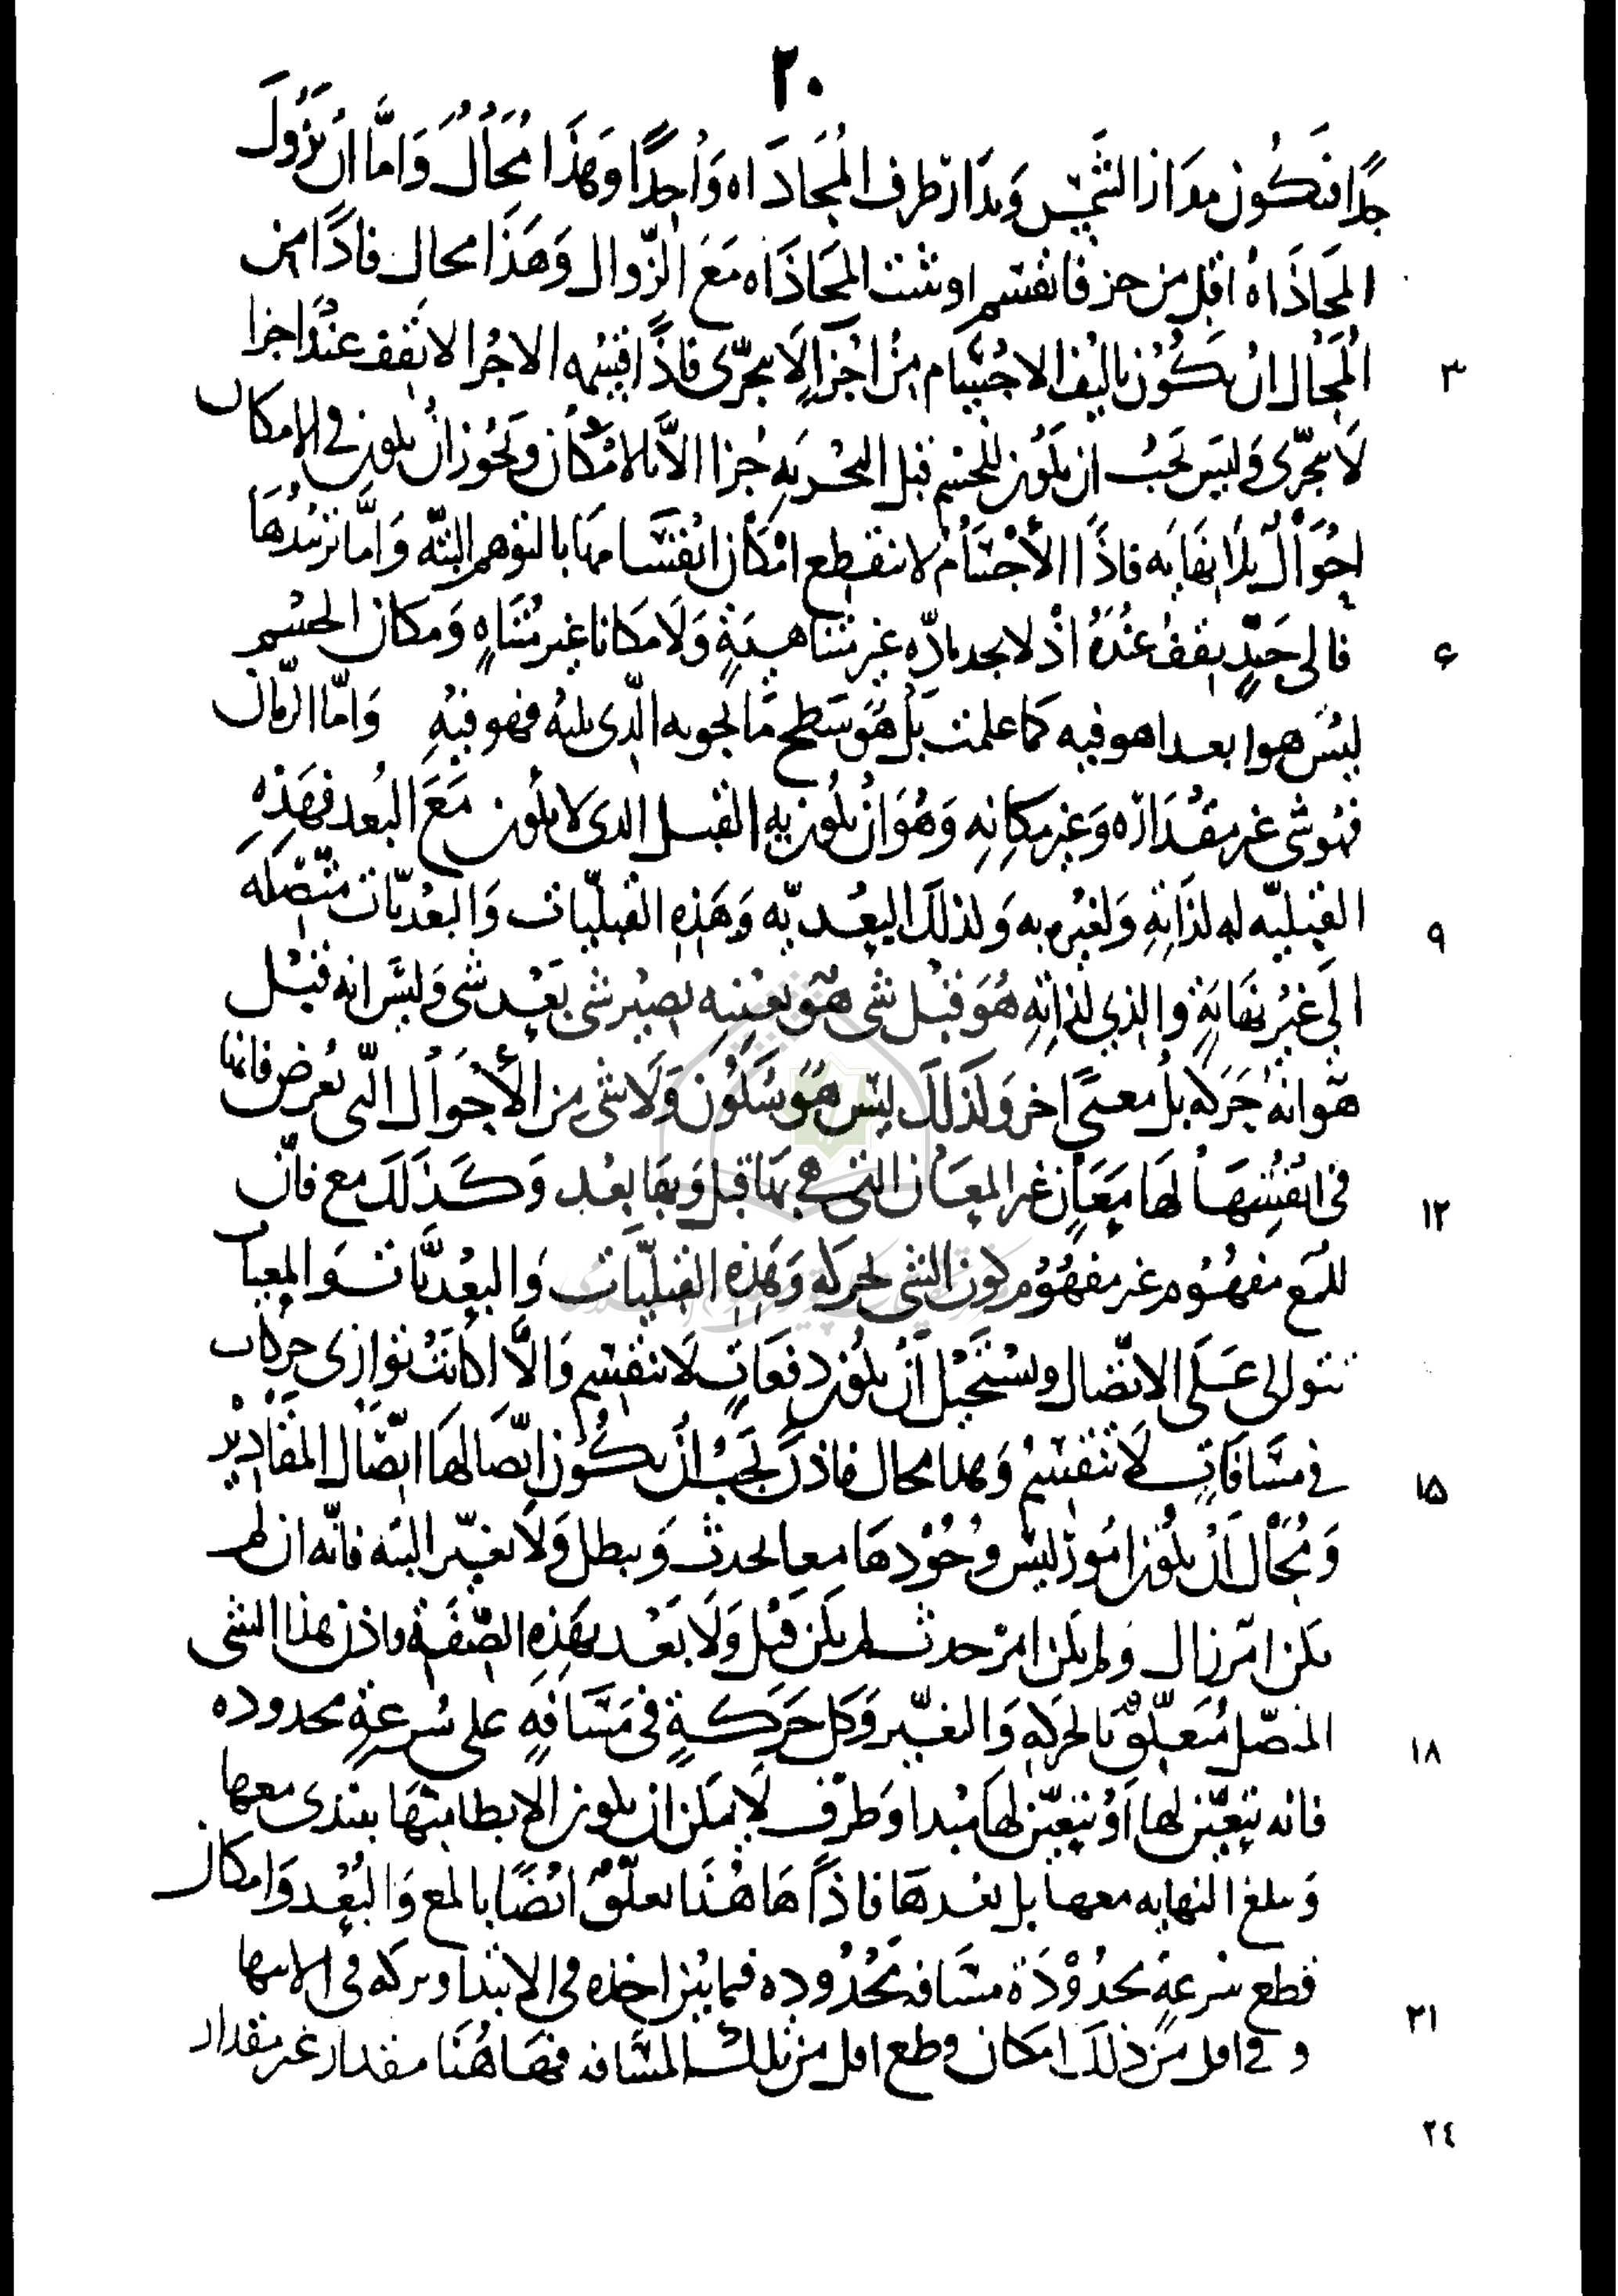 ٢٠
جدا فتكون مدار الشمس ومدار طرف المحاذاه واحدا وهذا محال واما ان تزول
المحاذاه اقل من جز فانقسم او تثبت المحاذاه مع الزوال وهذا محال فاذا من
٣ المحال ان يكون تاليف الاجسام من اجزا لا تتجزى فاذا قسمه الاجزا لا تقف عند اجزا
لا تتجزى وليس يجب ان يكون للجسم قبل التجزيه جزا الا بالامكان ويجوز ان يكون في الامكان
احوال بلا نهايه فاذا الاجسام لا ينقطع امكان انقسامها بالتوهم البته واما تزيدها
۶ فالى حد يقف عنده اذ لا يجد ماده غير متناهية ولا مكانا غير متناه ومكان الجسم
ليس هو ا بعدا هو فيه كما علمت بل هو سطح ما يحويه الذى يليه فهو فيه واما الزمان
فهو شى غير مقداره وغير مكانه وهو ان يكون به القبل الذى لا يكون مع البعد فهذه
٩ القبليه له لذاته ولغيره به ولذلك البعديه وهذه القبليات والبعديات متصله
الى غير نهاية والذي لذاته هو قبل شى هو بعينه يصير شى بعد شى وليس انه قبل
هو انه حركه بل معنى اخر ولذلك ليس هو سكون ولا شى من الاحوال التى تعرض فانها
١٢ فى انفسها لها معان غير المعان التى هى بها قبل وبها بعد وكذلك مع فان
للمع مفهوم غير مفهوم كون الشى حركه وهذه القبليات والبعديات والمعيات
تتوالى على الاتصال ويستحيل ان يكون دفعات لا تنقسم والا لكانت توازى حركات
١۵ في مسافات لا تنقسم وهذا محال فاذن يجب ان يكون اتصالها اتصال المقادير
ومحال ان يكون امور ليس وجودها معا يحدث ويبطل ولا يغير البته فانه ان لم
يكن امر زال ولم يكن امر حدث لم يكن قبل ولا بعد بهذه الصفة فاذن هذا الشى
١٨ المتصل متعلق بالحركه والتغير وكل حركة فى مسافه على سرعة محدوده
فانه يتعين لها او يتعين لها مبدا وطرف لا يمكن ان يكون الابطا منها يبتدى معها
ويبلغ النهايه معها بل بعدها فاذا هاهنا تعلق ايضا بالمع والبعد وامكان
قطع سرعة محدودة مسافه محدوده فيما بين اخذه في الابتدا وتركه في الانتها
٢١ و في اقل من ذلك امكان قطع اقل من تلك المسافه فهاهنا مقدار غير مقدار
٢٤